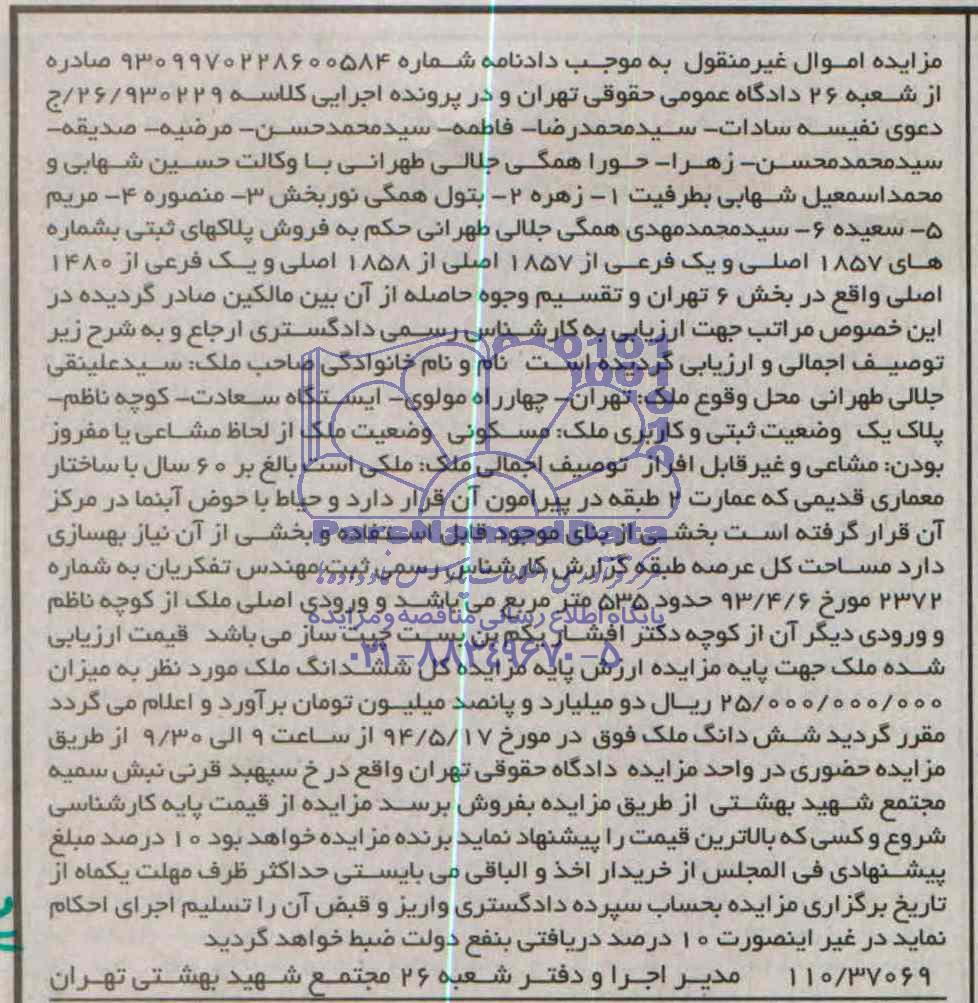 مزایده اموال غیرمنقول به موجب دادنامه شماره ۹۳۰۹۹۷۰۲۲۸۶۰۰۵۸۴ صادره
از شعبه ۲۶ دادگاه عمومی حقوقی تهران و در پرونده اجرایی کلاسه ۲۶/۹۳۰۲۲۹/ج
دعوی نفیسه سادات– سیدمحمدرضا– فاطمه– سیدمحمدحسن– مرضیه– صدیقه–
سیدمحمدمحسن– زهرا– حورا همگی جلالی طهرانی با وکالت حسین شهابی و
محمداسمعیل شهابی بطرفیت ۱– زهره ۲– بتول همگی نوربخش ۳– منصوره ۴– مریم
۵– سعیده ۶– سیدمحمدمهدی همگی جلالی طهرانی حکم به فروش پلاکهای ثبتی بشماره
های ۱۸۵۷ اصلی و یک فرعی از ۱۸۵۷ اصلی از ۱۸۵۸ اصلی و یک فرعی از ۱۴۸۰
اصلی واقع در بخش ۶ تهران و تقسیم وجوه حاصله از آن بین مالکین صادر گردیده در
این خصوص مراتب جهت ارزیابی به کارشناس رسمی دادگستری ارجاع و به شرح زیر
توصیف اجمالی و ارزیابی گردیده است نام و نام خانوادگی صاحب ملک: سیدعلینقی
جلالی طهرانی محل وقوع ملک: تهران– چهارراه مولوی– ایستگاه سعادت– کوچه ناظم–
پلاک یک وضعیت ثبتی و کاربری ملک: مسکونی وضعیت ملک از لحاظ مشاعی یا مفروز
بودن: مشاعی و غیرقابل افراز توصیف اجمالی ملک: ملکی است بالغ بر ۶۰ سال با ساختار
معماری قدیمی که عمارت ۲ طبقه در پیرامون آن قرار دارد و حیاط با حوض آبنما در مرکز
آن قرار گرفته است بخشی از بنای موجود قابل استفاده و بخشی از آن نیاز بهسازی
دارد مساحت کل عرصه طبقه گزارش کارشناس رسمی ثبت مهندس تفکریان به شماره
۲۳۷۲ مورخ ۹۳/۴/۶ حدود ۵۳۵ متر مربع می باشد و ورودی اصلی ملک از کوچه ناظم
و ورودی دیگر آن از کوچه دکتر افشار یکم بن بست چیت ساز می باشد قیمت ارزیابی
شده ملک جهت پایه مزایده ارزش پایه مزایده کل ششدانگ ملک مورد نظر به میزان
۲۵/۰۰۰/۰۰۰/۰۰۰ ریال دو میلیارد و پانصد میلیون تومان برآورد و اعلام می گردد
مقرر گردید شش دانگ ملک فوق در مورخ ۹۴/۵/۱۷ از ساعت ۹ الی ۹/۳۰ از طریق
مزایده حضوری در واحد مزایده دادگاه حقوقی تهران واقع در خ سپهبد قرنی نبش سمیه
مجتمع شهید بهشتی از طریق مزایده بفروش برسد مزایده از قیمت پایه کارشناسی
شروع و کسی که بالاترین قیمت را پیشنهاد نماید برنده مزایده خواهد بود ۱۰ درصد مبلغ
پیشنهادی فی المجلس از خریدار اخذ و الباقی می بایستی حداکثر ظرف مهلت یکماه از
تاریخ برگزاری مزایده بحساب سپرده دادگستری واریز و قبض آن را تسلیم اجرای احکام
نماید در غیر اینصورت ۱۰ درصد دریافتی بنفع دولت ضبط خواهد گردید
۱۱۰/۳۷۰۶۹ مدیر اجرا و دفتر شعبه ۲۶ مجتمع شهید بهشتی تهران
ParsNamadData
پایگاه اطلاع رسانی مناقصه و مزایده
۰۲۱-۸۸۳۴۹۶۷۰-۵